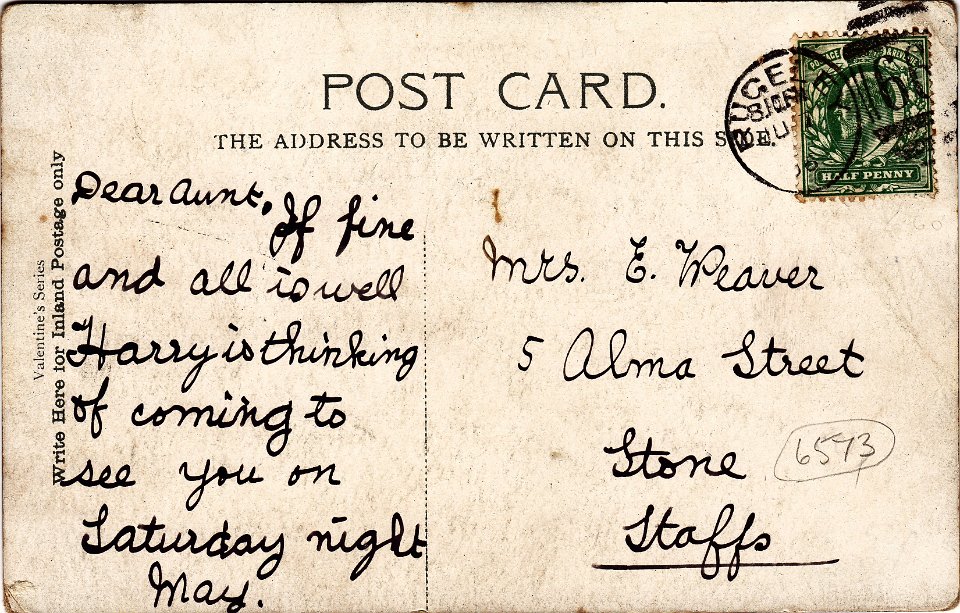 POST CARD.
THE ADDRESS TO BE WRITTEN ON THIS SIDE.
HALF PENNY
Valentine's Series
Write Here for Inland Postage only
Dear Aunt,
If fine
and all is well
Harry is thinking
of coming to
see you on
Saturday night
May.
Mrs. E. Weaver
5 Alma Street
Stone
Staffs
6573